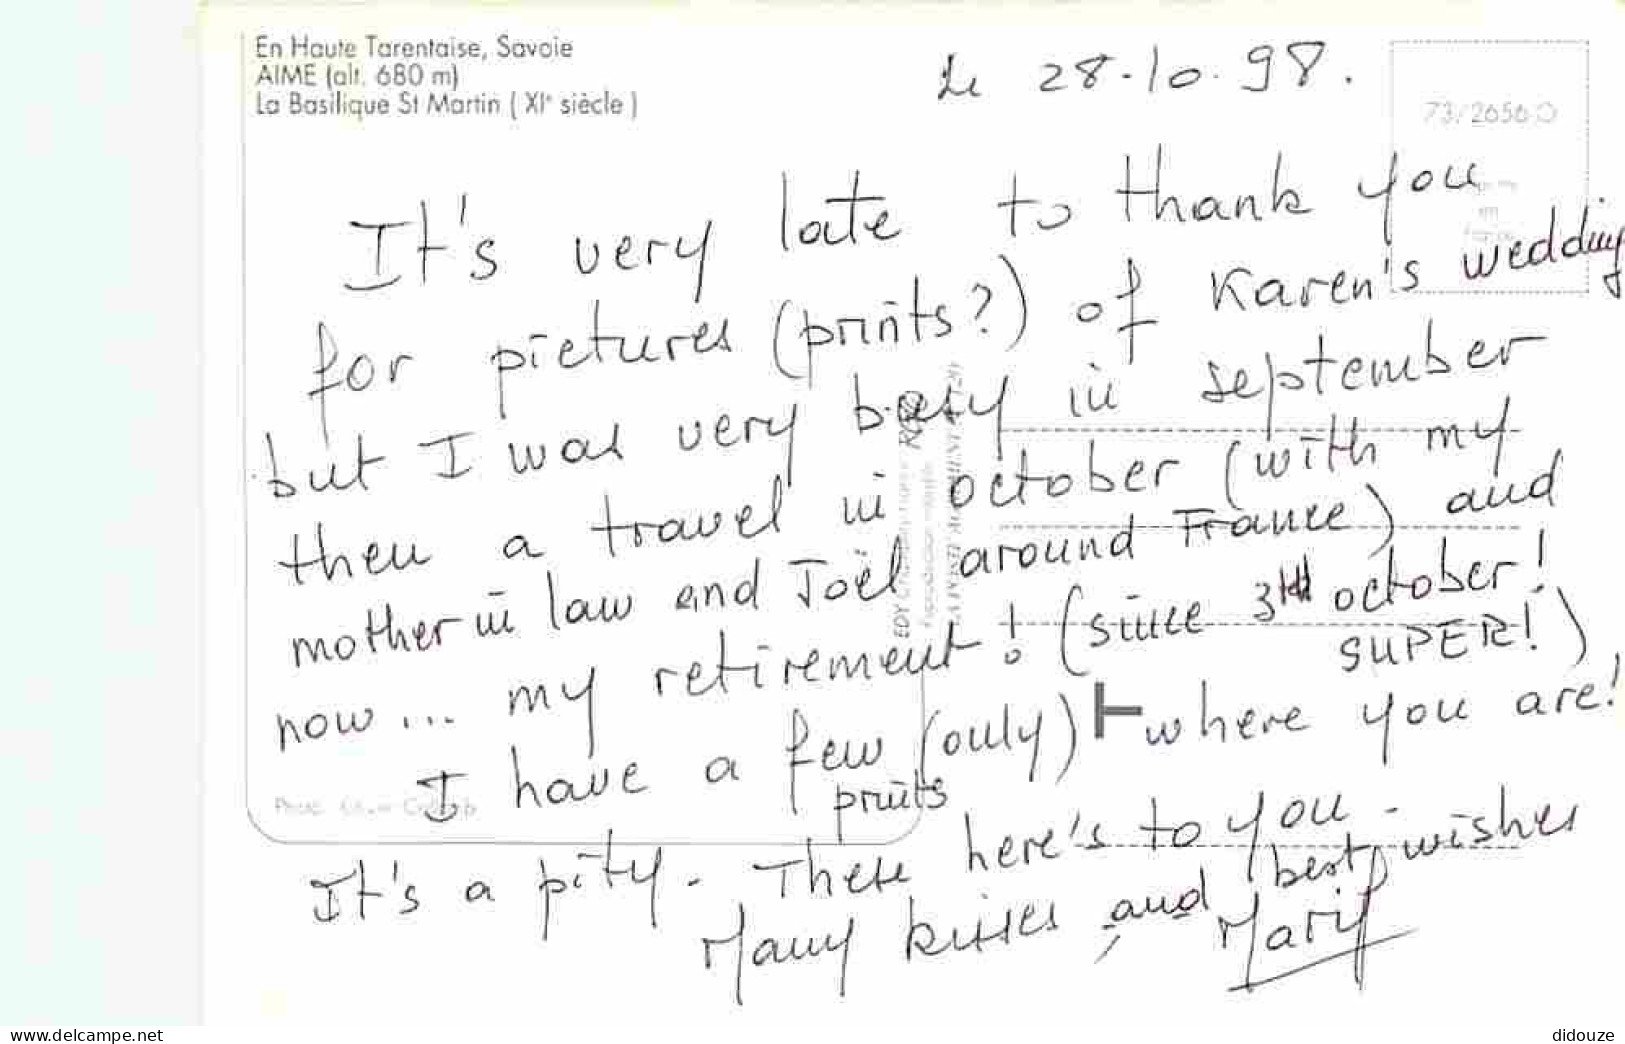 En Haute Tarentaise, Savoie
AIME (alt. 680 m)
La Basilique St Martin ( XIe siècle )
Le 28.10.98.
73/2656 O
It's very late to thank you
for pictures (prints?) of Karen's wedding
but I was very busy in september
then a travel in october (with my
mother in law and Joël around France) and
now... my retirement! (since 3rd october!
SUPER!)
I have a few (only) where you are!
prints
It's a pity. There here's to you.
Many kisses and best wishes
Mary
www.delcampe.net
didouze